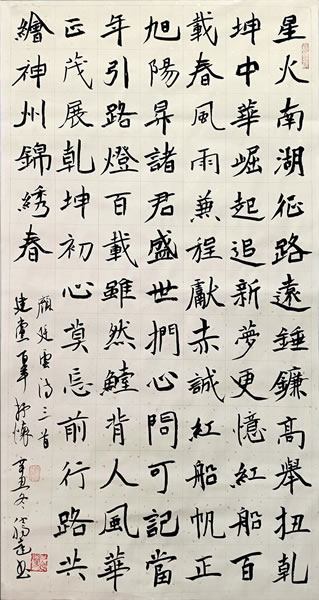 星火南湖征路遠錘鐮高舉扭乾
坤中華崛起追新夢更憶紅船百
載春風雨兼程獻赤誠紅船帆正
旭陽昇諸君盛世捫心問可記當
年引路燈百載雖然背人風華
正茂展乾坤初心莫忘前行路共
繪神州錦綉春
顏廷雲詩三首
建黨百年抒懷辛丑冬書